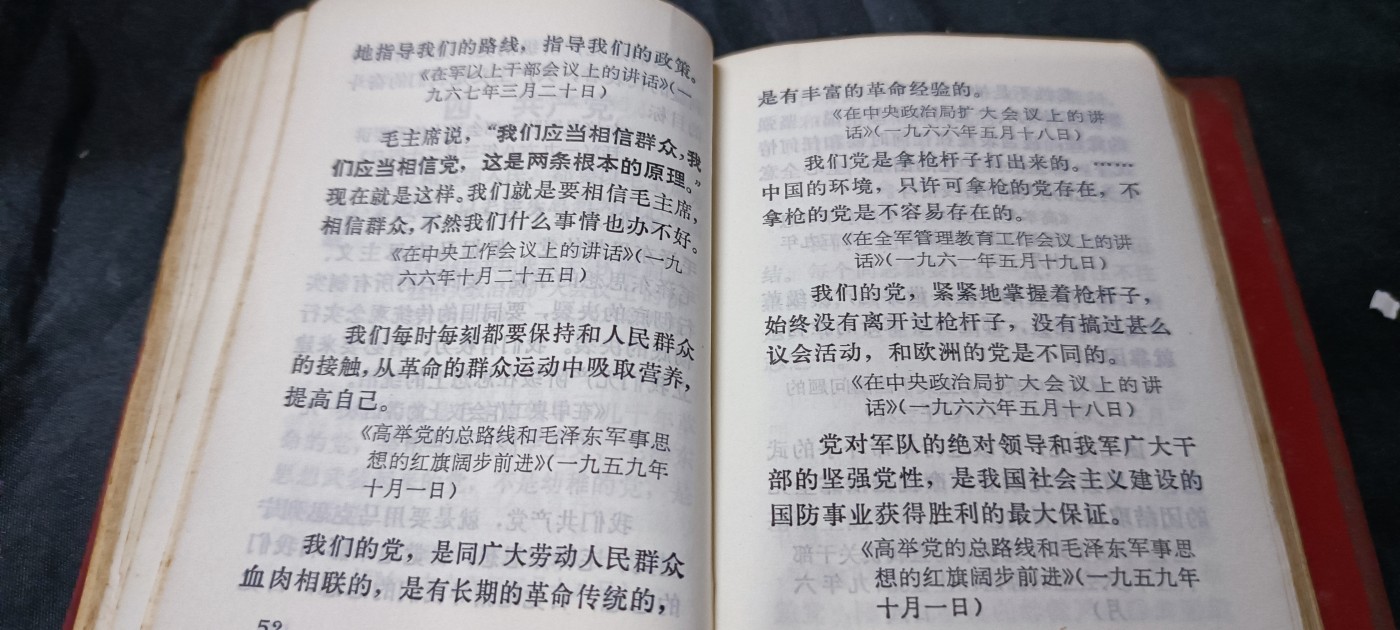 地指导我们的路线，指导我们的政策。
《在军以上干部会议上的讲话》（一
九六七年三月二十日）
毛主席说，“我们应当相信群众，我
们应当相信党，这是两条根本的原理。”
现在就是这样。我们就是要相信毛主席，
相信群众，不然我们什么事情也办不好。
《在中央工作会议上的讲话》（一九
六六年十月二十五日）
我们每时每刻都要保持和人民群众
的接触，从革命的群众运动中吸取营养，
提高自己。
《高举党的总路线和毛泽东军事思
想的红旗阔步前进》（一九五九年
十月一日）
我们的党，是同广大劳动人民群众
血肉相联的，是有长期的革命传统的，
52
是有丰富的革命经验的。
《在中央政治局扩大会议上的讲
话》（一九六六年五月十八日）
我们党是拿枪杆子打出来的。……
中国的环境，只许可拿枪的党存在，不
拿枪的党是不容易存在的。
《在全军管理教育工作会议上的讲
话》（一九六一年五月十九日）
我们的党，紧紧地掌握着枪杆子，
始终没有离开过枪杆子，没有搞过甚么
议会活动，和欧洲的党是不同的。
《在中央政治局扩大会议上的讲
话》（一九六六年五月十八日）
党对军队的绝对领导和我军广大干
部的坚强党性，是我国社会主义建设的
国防事业获得胜利的最大保证。
《高举党的总路线和毛泽东军事思
想的红旗阔步前进》（一九五九年
十月一日）